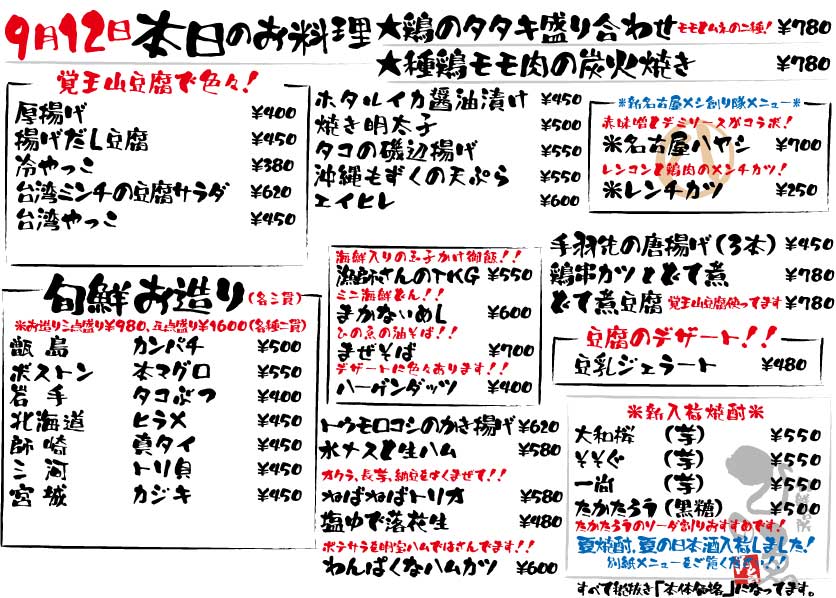 9月12日本日のお料理
★鶏のタタキ盛り合わせ モモとムネの二種! ¥780
★種鶏モモ肉の炭火焼き ¥780
覚王山豆腐で色々!
厚揚げ ¥400
揚げだし豆腐 ¥450
冷やっこ ¥380
台湾ミンチの豆腐サラダ ¥620
台湾やっこ ¥450
ホタルイカ醤油漬け ¥450
焼き明太子 ¥500
タコの磯辺揚げ ¥550
沖縄もずくの天ぷら ¥550
エイヒレ ¥600
※新名古屋メシ創り隊メニュー※
赤味噌とデミソースがコラボ!
※名古屋ハヤシ ¥700
レンコンと鶏肉のメンチカツ!
※レンチカツ ¥250
旬鮮お造り(各三貫)
※お造り三点盛り¥980、五点盛り¥1600(各種二貫)
甑島 カンパチ ¥500
ボストン 本マグロ ¥550
岩手 タコぶつ ¥400
北海道 ヒラメ ¥450
師崎 真タイ ¥450
三河 トリ貝 ¥450
宮城 カジキ ¥450
海鮮入りの玉子かけ御飯!!
漁師さんのTKG ¥550
ミニ海鮮どん!!
まかないめし ¥600
ひの魚の油そば!!
まぜそば ¥700
デザートに色々あります!!
ハーゲンダッツ ¥400
トウモロコシのかき揚げ ¥620
水ナスと生ハム ¥580
オクラ、長芋、納豆をよくまぜて!!
ねばねばトリオ ¥580
塩ゆで落花生 ¥480
ポテサラを明宝ハムではさんでます!!
わんぱくなハムカツ ¥600
手羽先の唐揚げ(3本) ¥450
鶏串カツとどて煮 ¥780
どて煮豆腐 覚王山豆腐使ってます ¥780
豆腐のデザート!!
豆乳ジェラート ¥480
※新入荷焼酎※
大和桜 (芋) ¥550
そそぐ (芋) ¥550
一尚 (芋) ¥550
たかたろう (黒糖) ¥500
たかたろうのソーダ割りおすすめです!
夏焼酎、夏の日本酒入荷しました!
別紙メニューをご覧ください!!
すべて税抜き「本体価格」になってます。